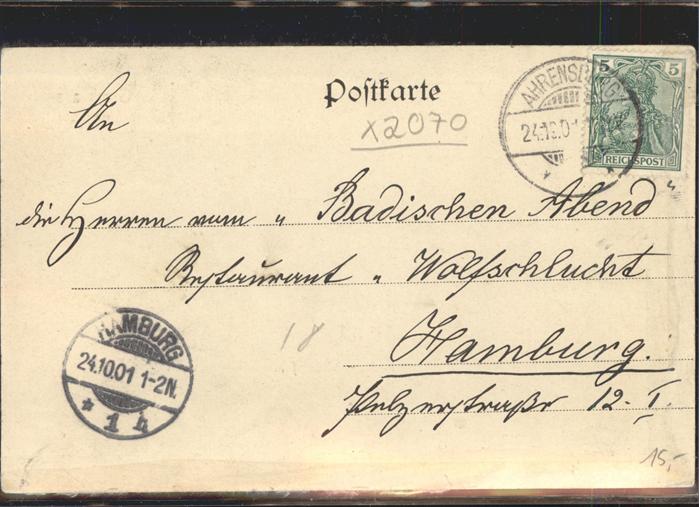 Postkarte
An
X2070
AHRENSBURG
24.10.01
5 5
REICHSPOST
die Herren vom „ Badischen Abend “
Restaurant „ Wolfschlucht
Hamburg.
Pelzerstraße 12. I.
HAMBURG
24.10.01 1-2N.
* 1 h
18
15,-